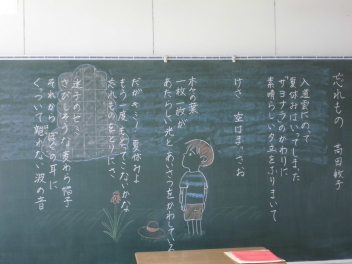 忘れもの　高田敏子
入道雲にのって
夏休みはいってしまった
サヨナラのかわりに
素晴らしい夕立をふりまいて
けさ　空はまっさお
木々の葉の一枚一枚が
あたらしい光とあいさつをかわしている
だがキミ！夏休みよ
もう一度もどってこないかな
忘れものをとりにさ
迷子のセミ
さびしそうな麦わら帽子
それから　ぼくの耳に
くっついて離れない波の音